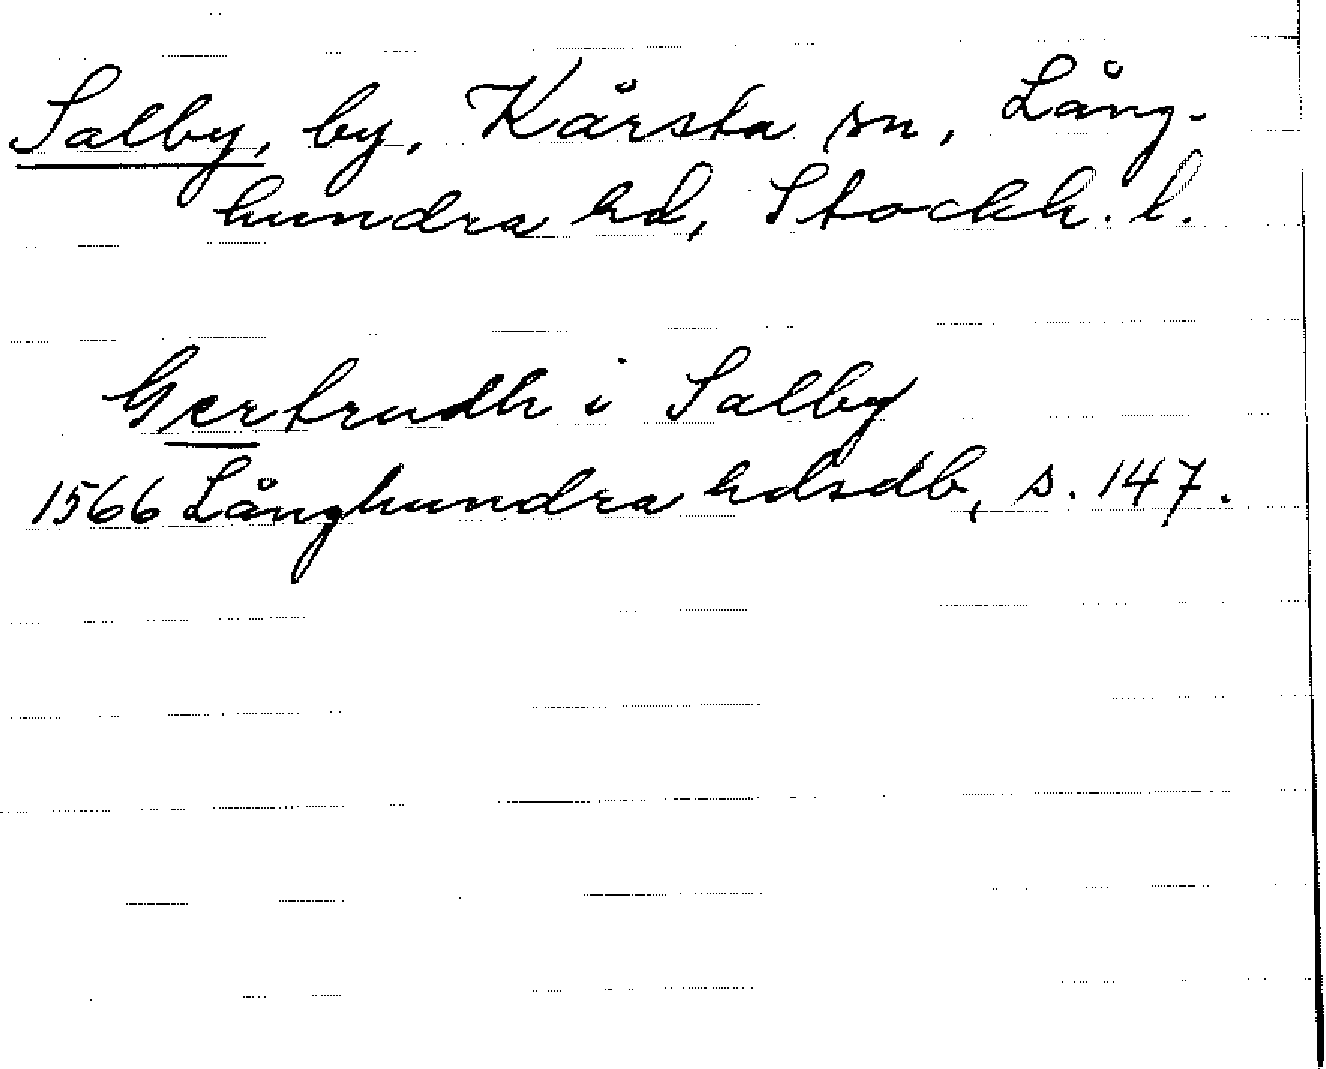 Salby, by, Kårsta sn, Lång-
hundra hd, Stockh. l.
Gertrudh i Salby
1566 Långhundra hdsdb, s. 147.